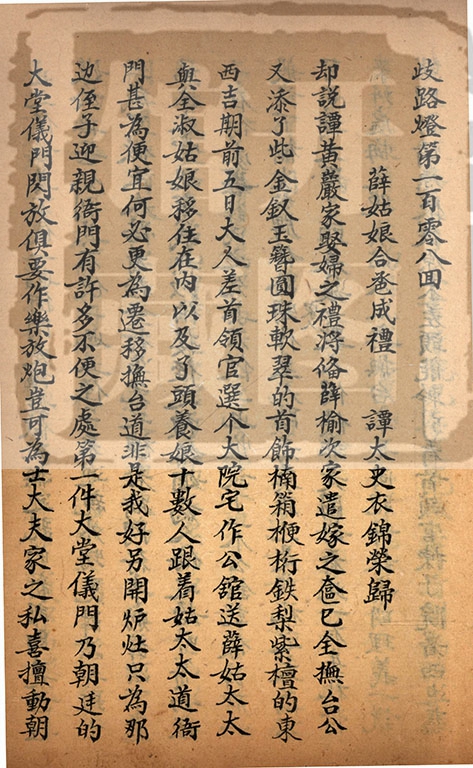 歧路燈第一百零八回
薛姑娘合卺成禮 譚太史衣錦榮歸
却說譚黃巖家娶婦之禮將備薛榆次家遣嫁之奩已全撫台公
又添了些金釵玉簪圓珠軟翠的首飾楠箱楩桁鉄梨紫檀的東
西吉期前五日大人差首領官選个大院宅作公舘送薛姑太太
與全淑姑娘移住在內以及了頭養娘十數人跟着姑太太道衙
門甚為便宜何必更為遷移撫台道非是我好另開炉灶只為那
边侄子迎親衙門有許多不便之處第一件大堂儀門乃朝廷的
大堂儀門閃放俱要作樂放炮豈可為士大夫家之私喜擅動朝